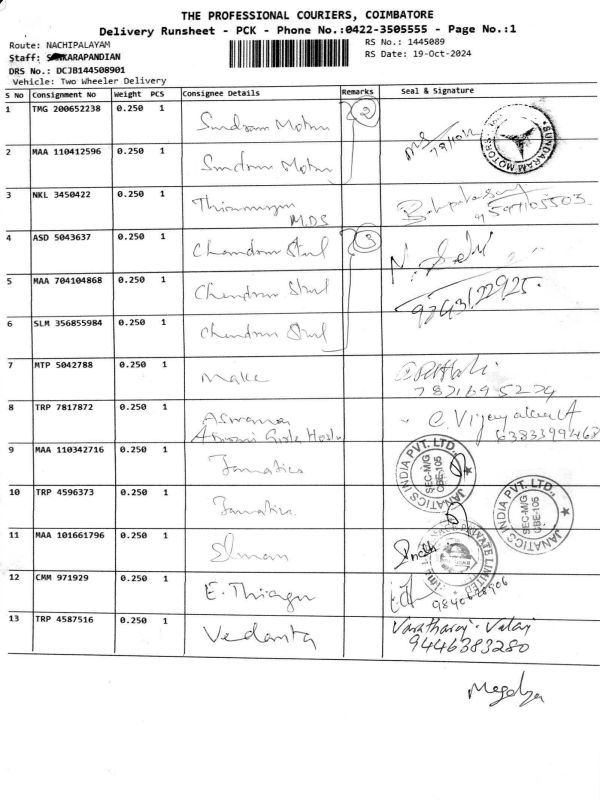 THE PROFESSIONAL COURIERS, COIMBATORE
Delivery Runsheet - PCK - Phone No.:0422-3505555 - Page No.:1
Route: NACHIPALAYAM
RS No.: 1445089
Staff: KARAPANDIAN
RS Date: 19-Oct-2024
DRS No.: DCJB144508901
Vehicle: Two Wheeler Delivery
S No Consignment No Weight PCS Consignee Details Remarks Seal & Signature
1 TMG 200652238 0.250 1 Sundram Motors 2
SUNDARAM MOTORS
2 MAA 110412596 0.250 1 Sundram Motors
3 NKL 3450422 0.250 1 Thirumurugan
M.D.S
4 ASD 5043637 0.250 1 Chandram Steel 3
5 MAA 704104868 0.250 1 Chendram Steel
9243122925.
6 SLM 356855984 0.250 1 Chendram Steel
7 MTP 5042788 0.250 1 Make
8 TRP 7817872 0.250 1 Aswana
C. Vijayalaksh
6383399468
9 MAA 110342716 0.250 1 Janatics
JANATICS INDIA PVT. LTD.,
SEC-M/G
CBE-105
10 TRP 4596373 0.250 1 Janatics
JANATICS INDIA PVT. LTD.,
SEC-M/G
CBE-105
11 MAA 101661796 0.250 1
PRIVATE LIMITED
12 CMM 971929 0.250 1 E. Thiagu
13 TRP 4587516 0.250 1 Vedanta
Varatharaj. Valavi
9446383280